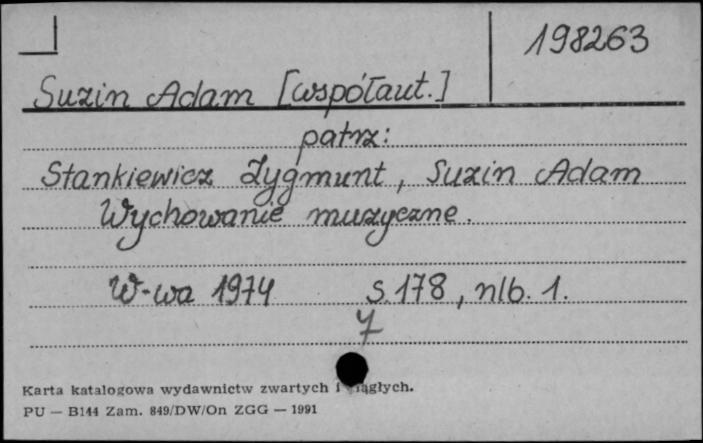 198263
Suzin Adam [współaut.]
patrz:
Stankiewicz Zygmunt, Suzin Adam
Wychowanie muzyczne.
W-wa 1974 s. 178, nlb. 1.
7
Karta katalogowa wydawnictw zwartych i ciągłych.
PU — B144 Zam. 849/DW/On ZGG — 1991